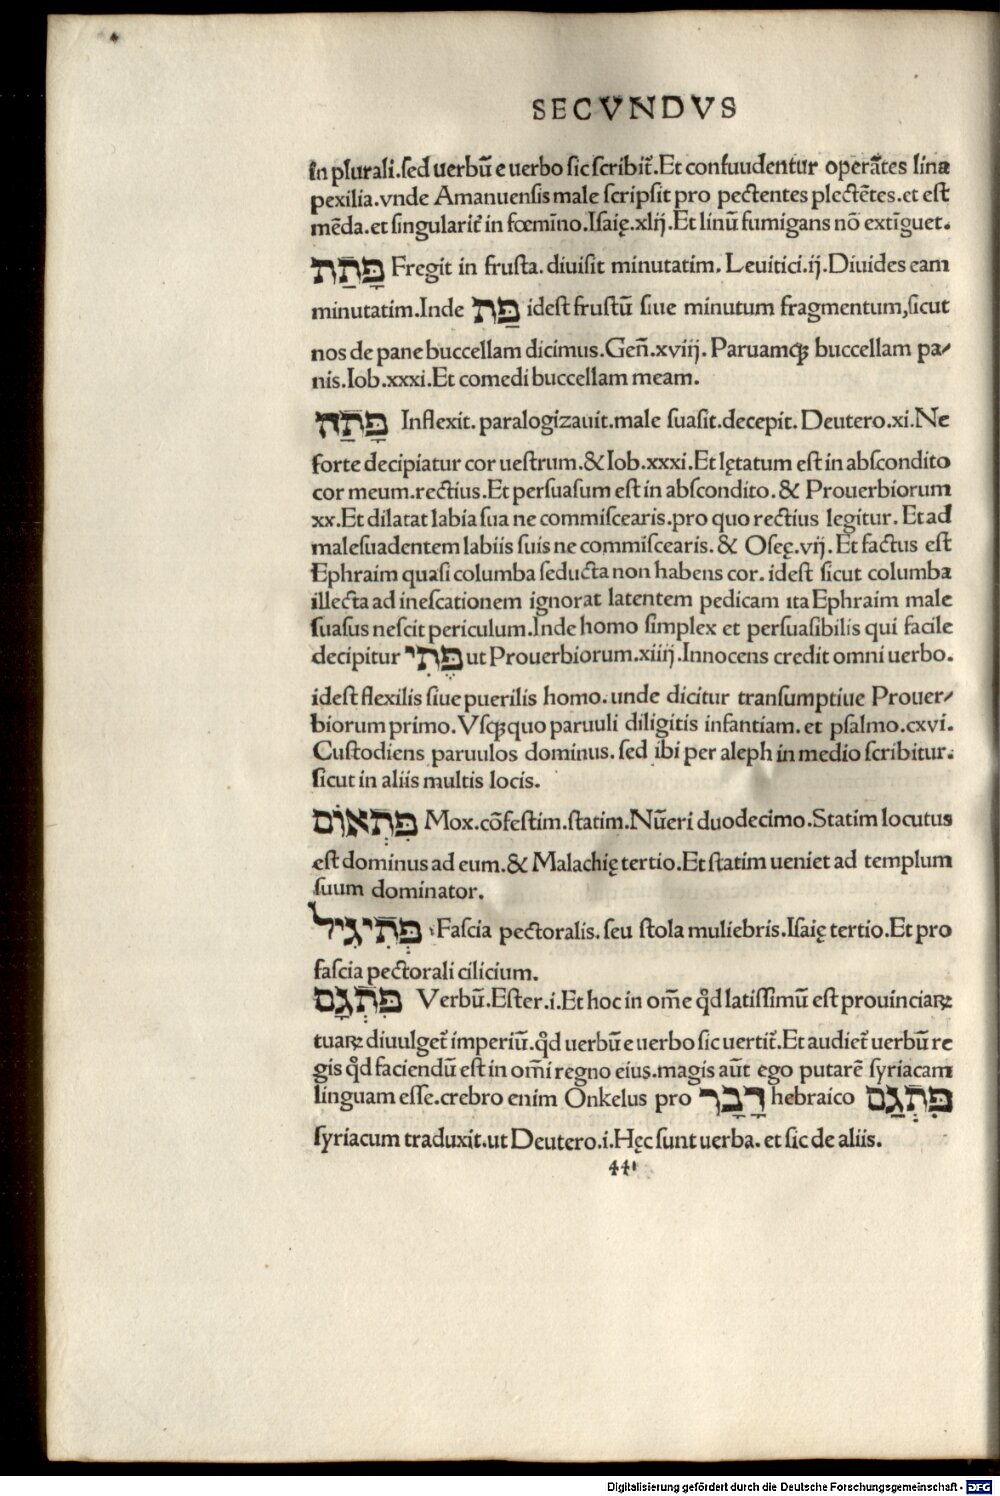 SECVNDVS
in plurali.sed uerbū e uerbo sic scribit᷑.Et confuudentur operātes lina
pexilia.vnde Amanuensis male scripsit pro pectentes plectētes.et est
mēda.et singularit᷑ in fœmīno.Isaię.xlij.Et linū fumigans nō extīguet.
פָּתַת Fregit in frusta. diuisit minutatim. Leuitici.ij.Diuides eam
minutatim.Inde פַּת idest frustū siue minutum fragmentum,sicut
nos de pane buccellam dicimus.Geñ.xviij. Paruamqꝫ buccellam pa/
nis.Iob.xxxi.Et comedi buccellam meam.
פָּתַה Inflexit. paralogizauit.male suasit.decepit. Deutero.xi.Ne
forte decipiatur cor uestrum.& Iob.xxxi.Et lętatum est in abscondito
cor meum.rectius.Et persuasum est in abscondito. & Prouerbiorum
xx.Et dilatat labia sua ne commiscearis.pro quo rectius legitur. Et ad
malesuadentem labiis suis ne commiscearis. & Oseę.vij. Et factus est
Ephraim quasi columba seducta non habens cor. idest sicut columba
illecta ad inescationem ignorat latentem pedicam ita Ephraim male
suasus nescit periculum.Inde homo simplex et persuasibilis qui facile
decipitur פֶּתִי ut Prouerbiorum.xiiij.Innocens credit omni uerbo.
idest flexilis siue puerilis homo. unde dicitur transumptiue Prouer/
biorum primo. Vsqꝫ quo paruuli diligitis infantiam. et psalmo.cxvi.
Custodiens paruulos dominus. sed ibi per aleph in medio scribitur.
sicut in aliis multis locis.
פִּתְאוֹם Mox.cōfestim.statim.Nūeri duodecimo.Statim locutus
est dominus ad eum.& Malachię tertio.Et statim ueniet ad templum
suum dominator.
פְּתִיגִיל Fascia pectoralis. seu stola muliebris.Isaię tertio.Et pro
fascia pectorali cilicium.
פִּתְגָם Verbū.Ester.i.Et hoc in om̄e qd̓ latissimū est prouinciaꝝ
tuaꝝ diuulget᷑ imperiū.qd̓ uerbū e uerbo sic uertit᷑.Et audiet᷑ uerbū re
gis qd̓ faciendū est in om̄i regno eius.magis aūt ego putarē syriacam
linguam esse.crebro enim Onkelus pro דָבָר hebraico פִּתְגַם
syriacum traduxit.ut Deutero.i.Hęc sunt uerba. et sic de aliis.
44
Digitalisierung gefördert durch die Deutsche Forschungsgemeinschaft - DFG